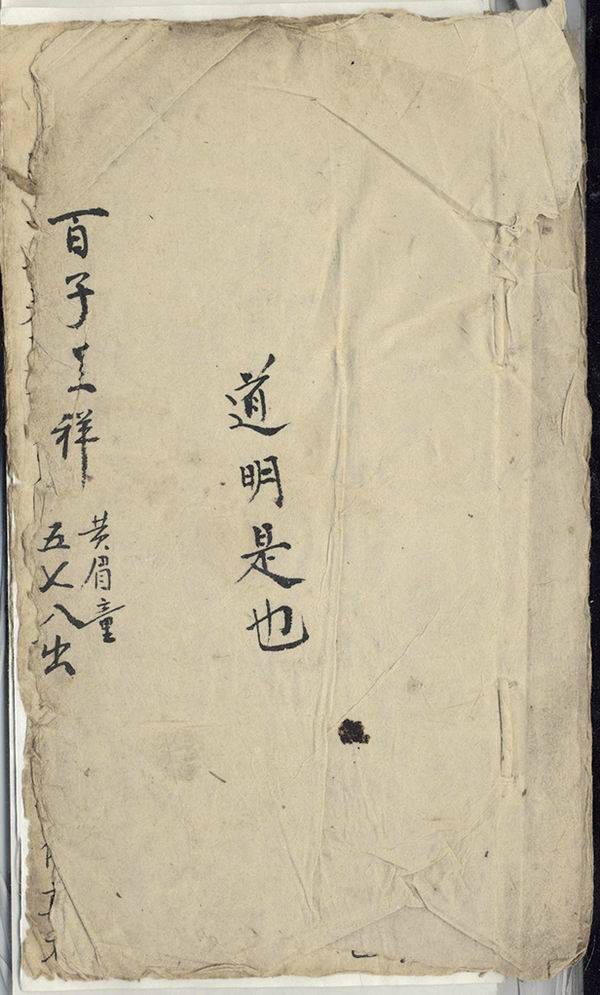 道明是也
百子吉祥
黄眉童
五七八出